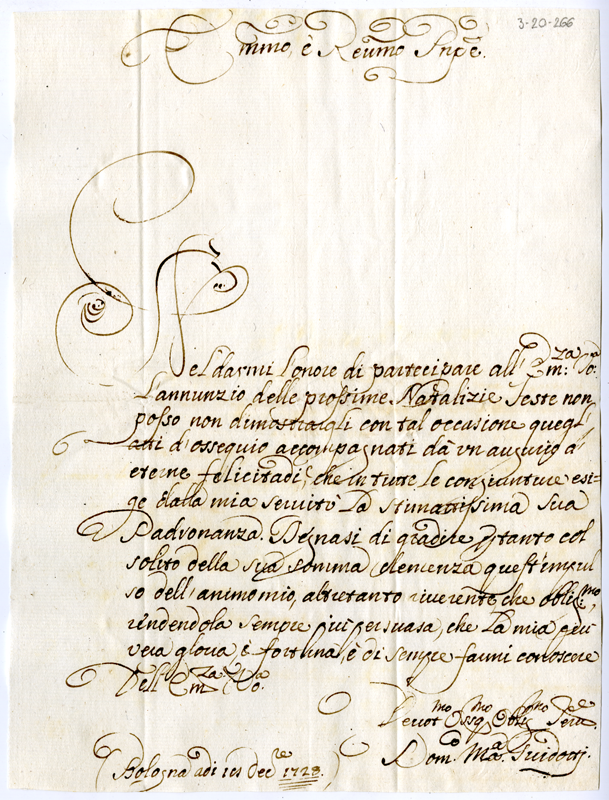 3-20-266
Emmo, è Reumo Pnpe.
Nel darmi l'onore di partecipare all' Em:za Va:
L'annunzio delle prossime Natalizie Feste non
posso non dimostrargli con tal occasione quegl'
atti d'ossequio accompagnati dà un augurio d'
eterne felicitadi, che in tutte le congiunture esi=
ge dalla mia servitù La stimatissima sua
Padronanza. Degnasi di gradire col
solito della sua somma clemenza quest'impul
so dell'animo mio, altretanto riverente che oblig:mo,
rendendola sempre più persuasa, che La mia più
vera gloria è fortuna, è di sempre farmi conoscere
Dell' Em:za Va:
Devot:mo Ossq:mo Oblig:mo Serv:e
Dom:co Ma:a Guidotti
Bologna adi Dec:e 1728.